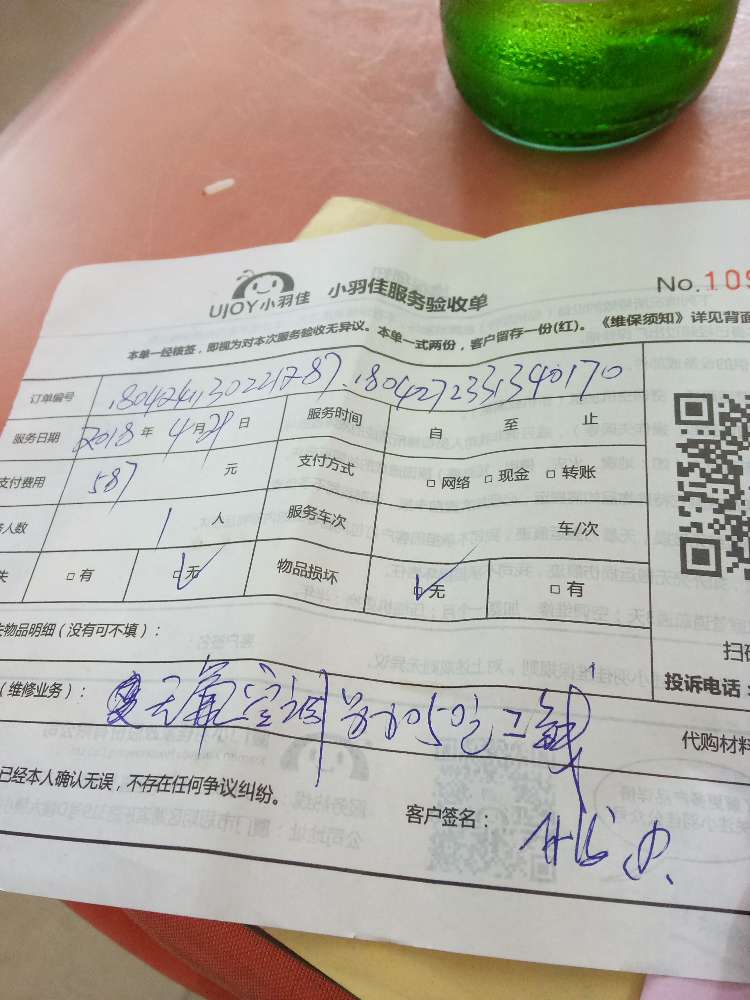 UJOY小羽佳 小羽佳服务验收单 No.109
本单一经核签，即视为对本次服务验收无异议。本单一式两份，客户留存一份(红)。《维保须知》详见背面
订单编号 180424130221787.180427233134 0170
服务日期 2018 年 4 月 29 日 服务时间 自 至 止
支付费用 587 元 支付方式 □ 网络 □ 现金 □ 转账
人数 1 人 服务车次 车/次
失 □ 有 □ 无 物品损坏 □ 无 □ 有
物品明细（没有可不填）：
扫
（维修业务）： 空调 工 1
投诉电话：
代购材料
已经本人确认无误，不存在任何争议纠纷。
客户签名：